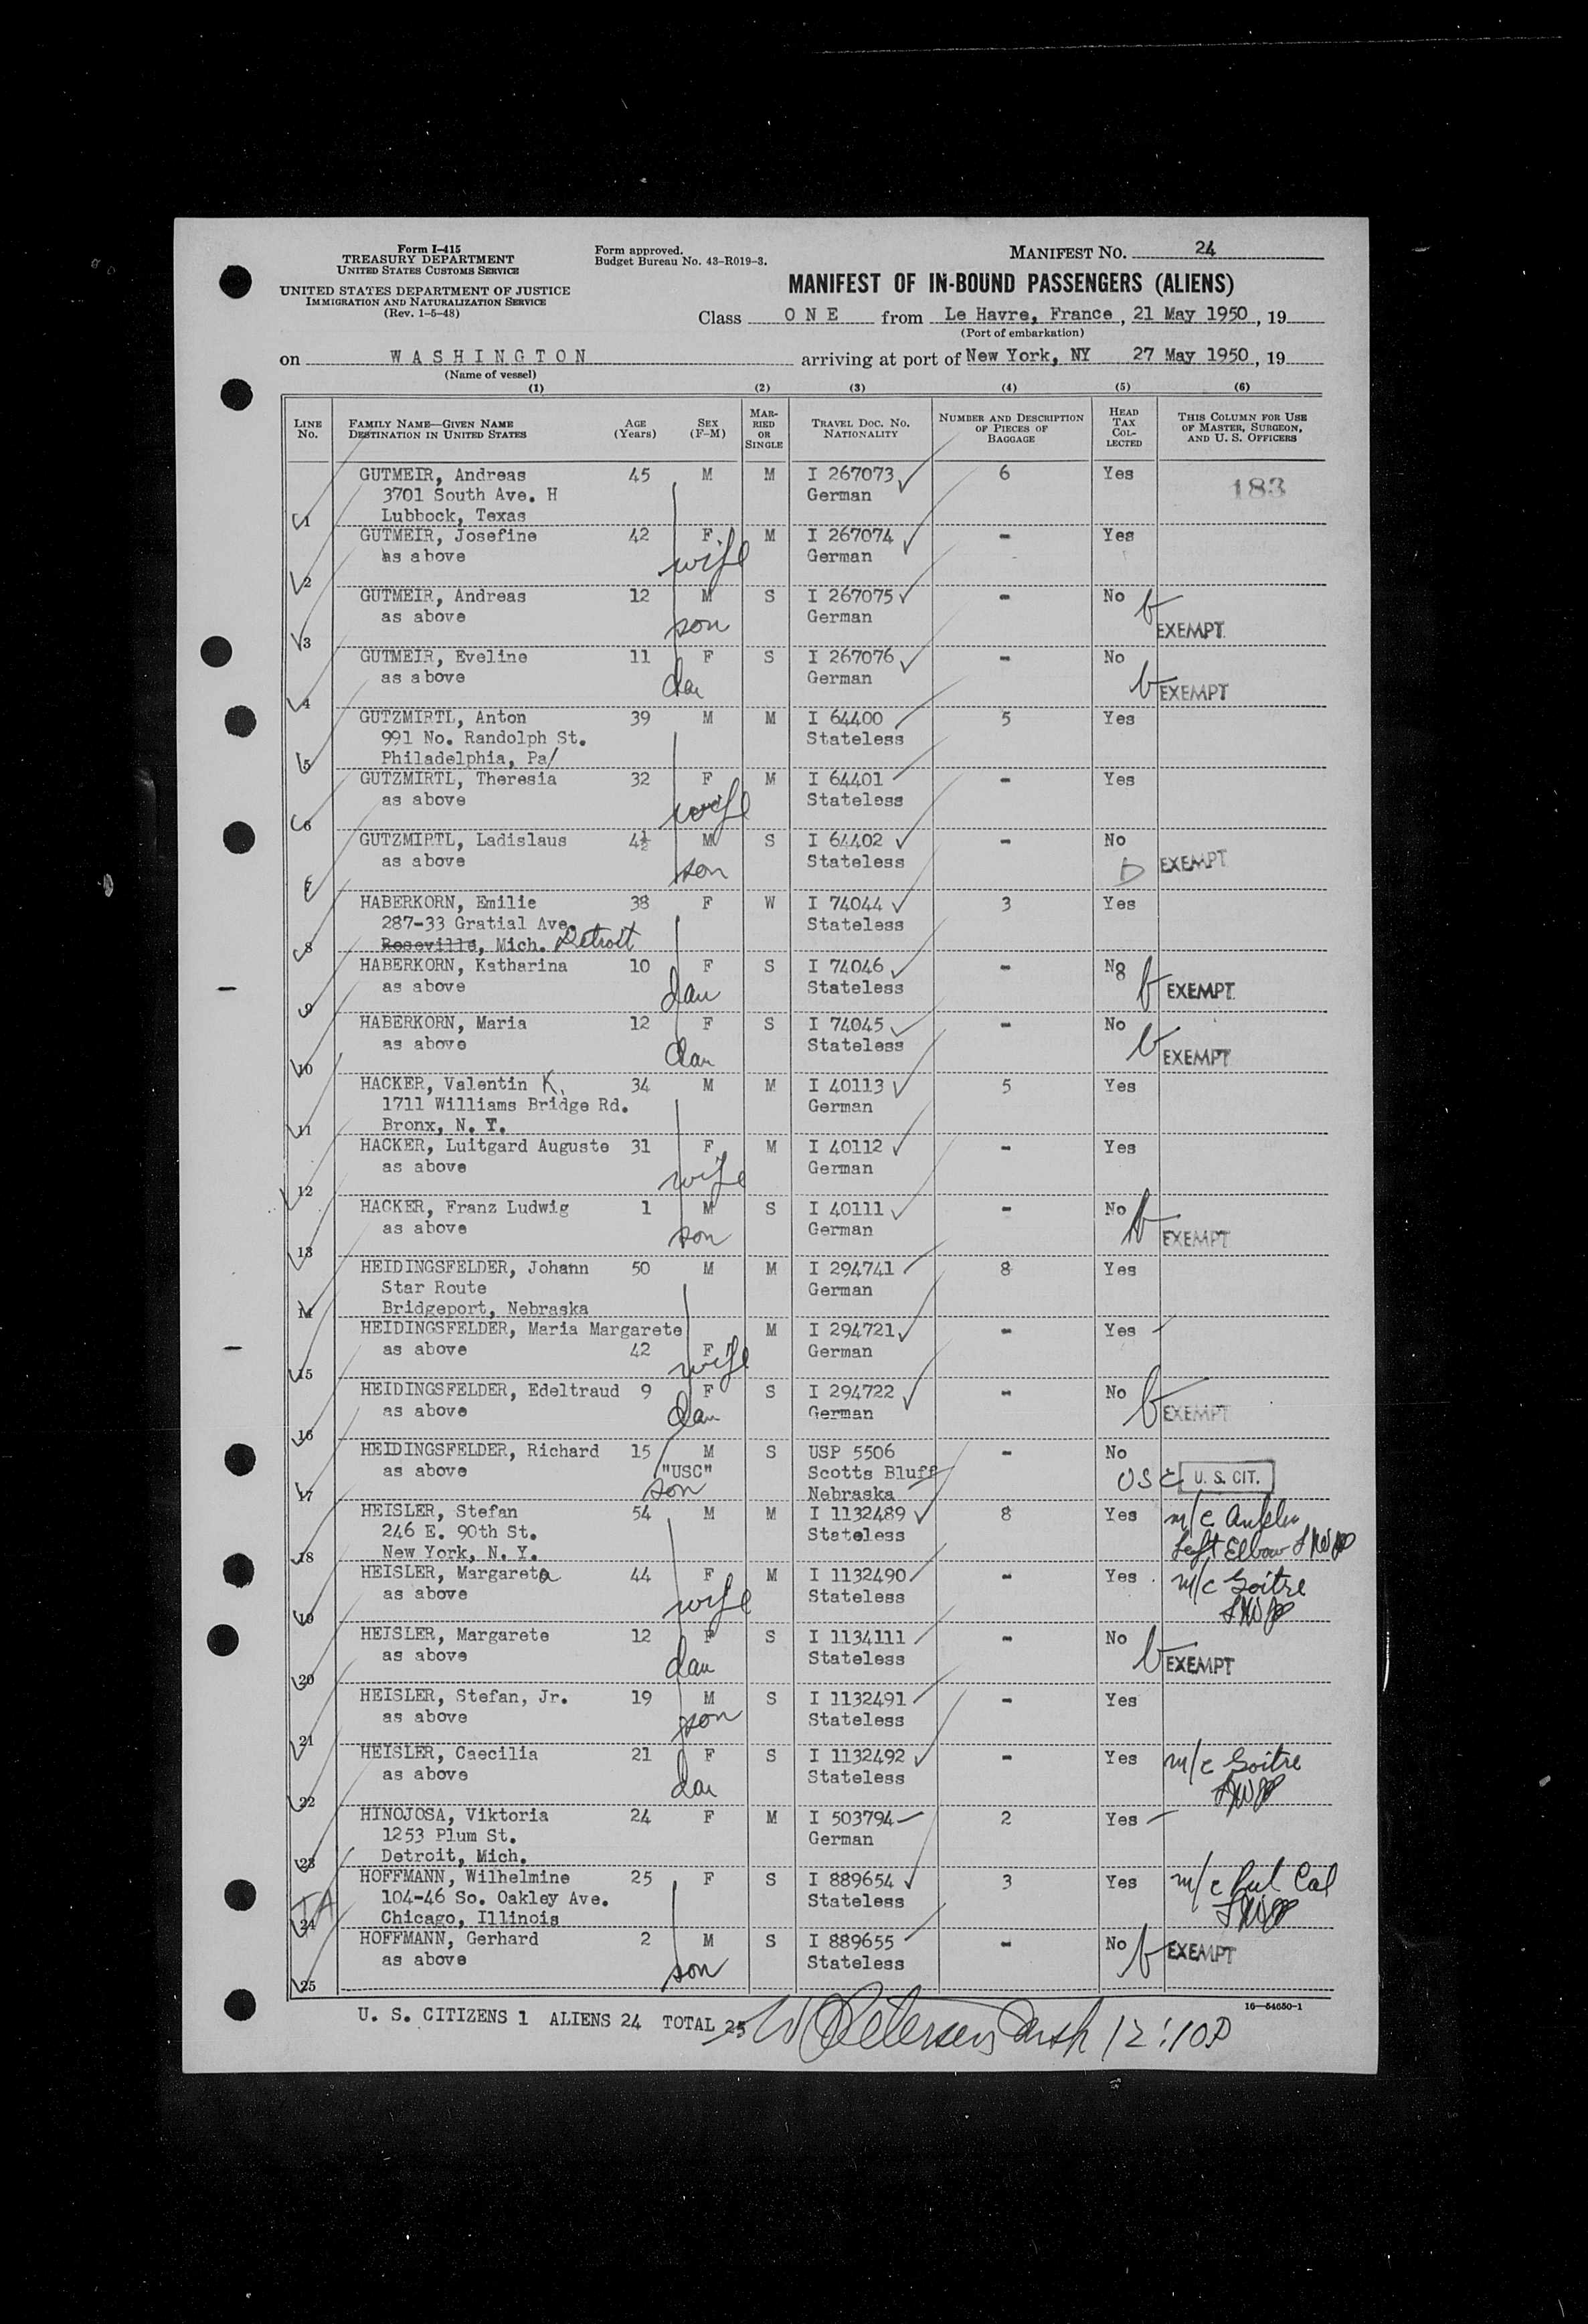 Form I-415
TREASURY DEPARTMENT
UNITED STATES CUSTOMS SERVICE
UNITED STATES DEPARTMENT OF JUSTICE
IMMIGRATION AND NATURALIZATION SERVICE
(Rev. 1-5-48)
Form approved.
Budget Bureau No. 43-R019-3.
MANIFEST NO. 24
MANIFEST OF IN-BOUND PASSENGERS (ALIENS)
Class O N E from Le Havre, France, 21 May 1950, 19
(Port of embarkation)
on W A S H I N G T O N arriving at port of New York, NY 27 May 1950, 19
(Name of vessel)
(1) (2) (3) (4) (5) (6)
LINE No. FAMILY NAME—GIVEN NAME DESTINATION IN UNITED STATES AGE (Years) SEX (F-M) MARRIED OR SINGLE TRAVEL DOC. NO. NATIONALITY NUMBER AND DESCRIPTION OF PIECES OF BAGGAGE HEAD TAX COLLECTED THIS COLUMN FOR USE OF MASTER, SURGEON, AND U. S. OFFICERS
GUTMEIR, Andreas 45 M M I 267073 6 Yes
3701 South Ave. H German 183
1 Lubbock, Texas
GUTMEIR, Josefine 42 F M I 267074 - Yes
as above wife German
2
GUTMEIR, Andreas 12 M S I 267075 - No
as above son German EXEMPT
3
GUTMEIR, Eveline 11 F S I 267076 - No
as above dau German EXEMPT
4
GUTZMIRTL, Anton 39 M M I 64400 5 Yes
991 No. Randolph St. Stateless
5 Philadelphia, Pa/
GUTZMIRTL, Theresia 32 F M I 64401 - Yes
as above wife Stateless
6
GUTZMIRTL, Ladislaus 4½ M S I 64402 - No
as above son Stateless EXEMPT
7
HABERKORN, Emilie 38 F W I 74044 3 Yes
287-33 Gratial Ave. Stateless
8 Roseville, Mich. Detroit
HABERKORN, Katharina 10 F S I 74046 - No
as above dau Stateless EXEMPT
9
HABERKORN, Maria 12 F S I 74045 - No
as above dau Stateless EXEMPT
10
HACKER, Valentin K. 34 M M I 40113 5 Yes
1711 Williams Bridge Rd. German
11 Bronx, N. Y.
HACKER, Luitgard Auguste 31 F M I 40112 - Yes
as above wife German
12
HACKER, Franz Ludwig 1 M S I 40111 - No
as above son German EXEMPT
13
HEIDINGSFELDER, Johann 50 M M I 294741 8 Yes
Star Route German
14 Bridgeport, Nebraska
HEIDINGSFELDER, Maria Margarete M I 294721 - Yes
as above 42 F wife German
15
HEIDINGSFELDER, Edeltraud 9 F S I 294722 - No
as above dau German EXEMPT
16
HEIDINGSFELDER, Richard 15 M S USP 5506 - No
as above "USC" Scotts Bluff USC U. S. CIT.
17 son Nebraska
HEISLER, Stefan 54 M M I 1132489 8 Yes m/c
246 E. 90th St. Stateless Left Elbow
18 New York, N. Y.
HEISLER, Margareta 44 F M I 1132490 - Yes m/c Goitre
as above wife Stateless
19
HEISLER, Margarete 12 F S I 1134111 - No
as above dau Stateless EXEMPT
20
HEISLER, Stefan, Jr. 19 M S I 1132491 - Yes
as above son Stateless
21
HEISLER, Caecilia 21 F S I 1132492 - Yes m/c Goitre
as above dau Stateless
22
HINOJOSA, Viktoria 24 F M I 503794 2 Yes
1253 Plum St. German
23 Detroit, Mich.
HOFFMANN, Wilhelmine 25 F S I 889654 3 Yes m/c Pul Cal
104-46 So. Oakley Ave. Stateless
24 Chicago, Illinois
HOFFMANN, Gerhard 2 M S I 889655 - No EXEMPT
as above son Stateless
25
16—54650-1
U. S. CITIZENS 1 ALIENS 24 TOTAL 25 12:10P